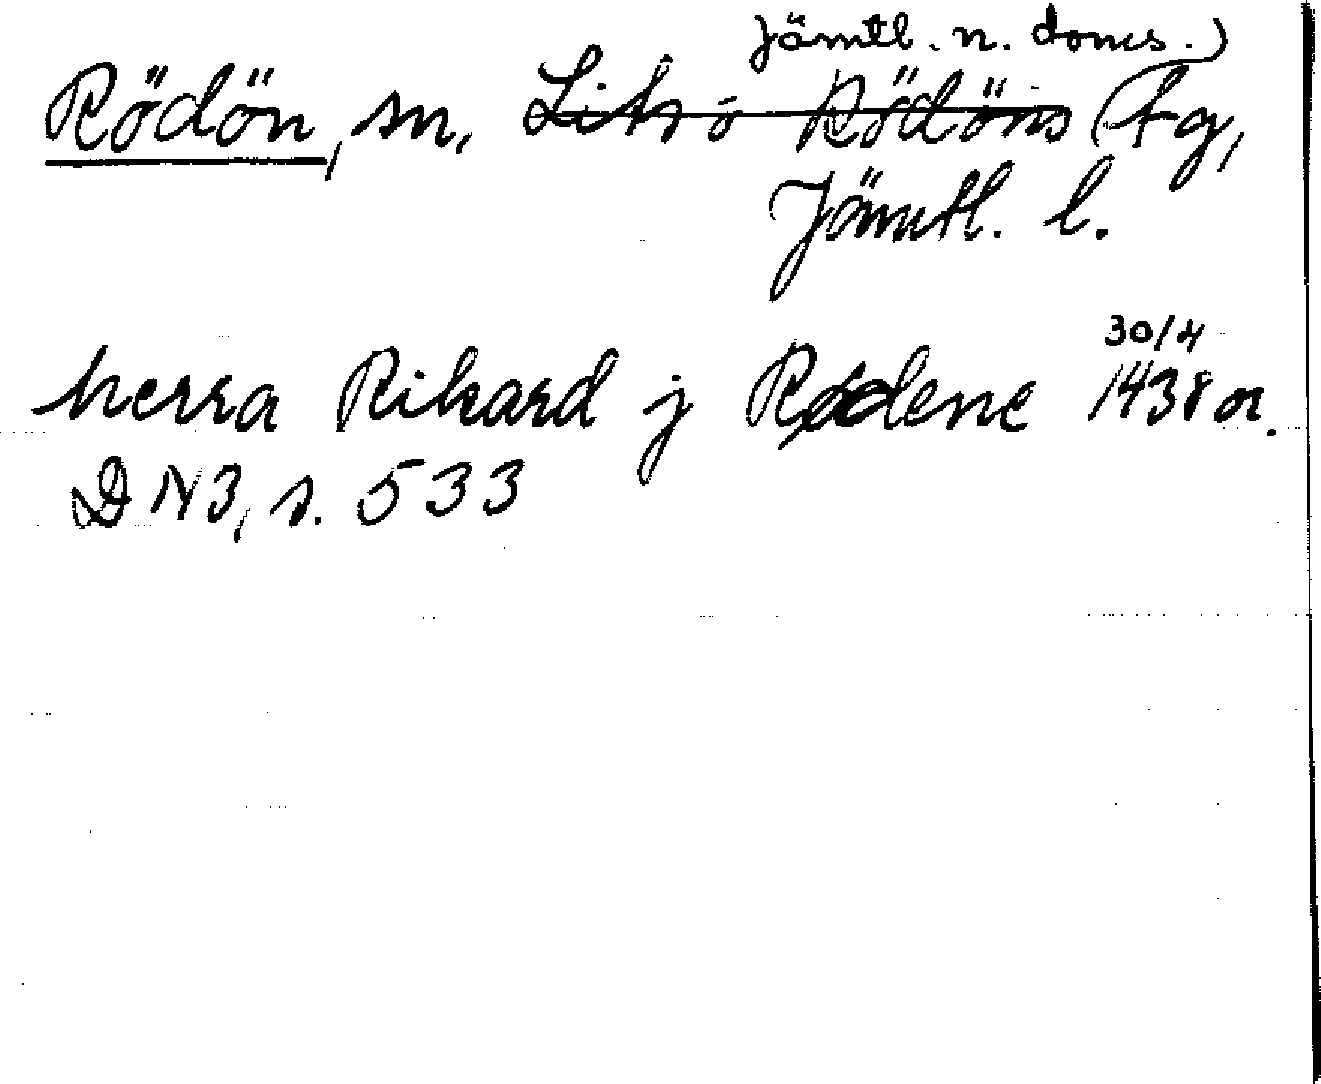 Jämtl. n. doms.)
Rödön, sn, Lits o Rödöns tg,
Jämtl. l.
30/4
herra Rikard j Rødene 1438 or.
DN 3, s. 533